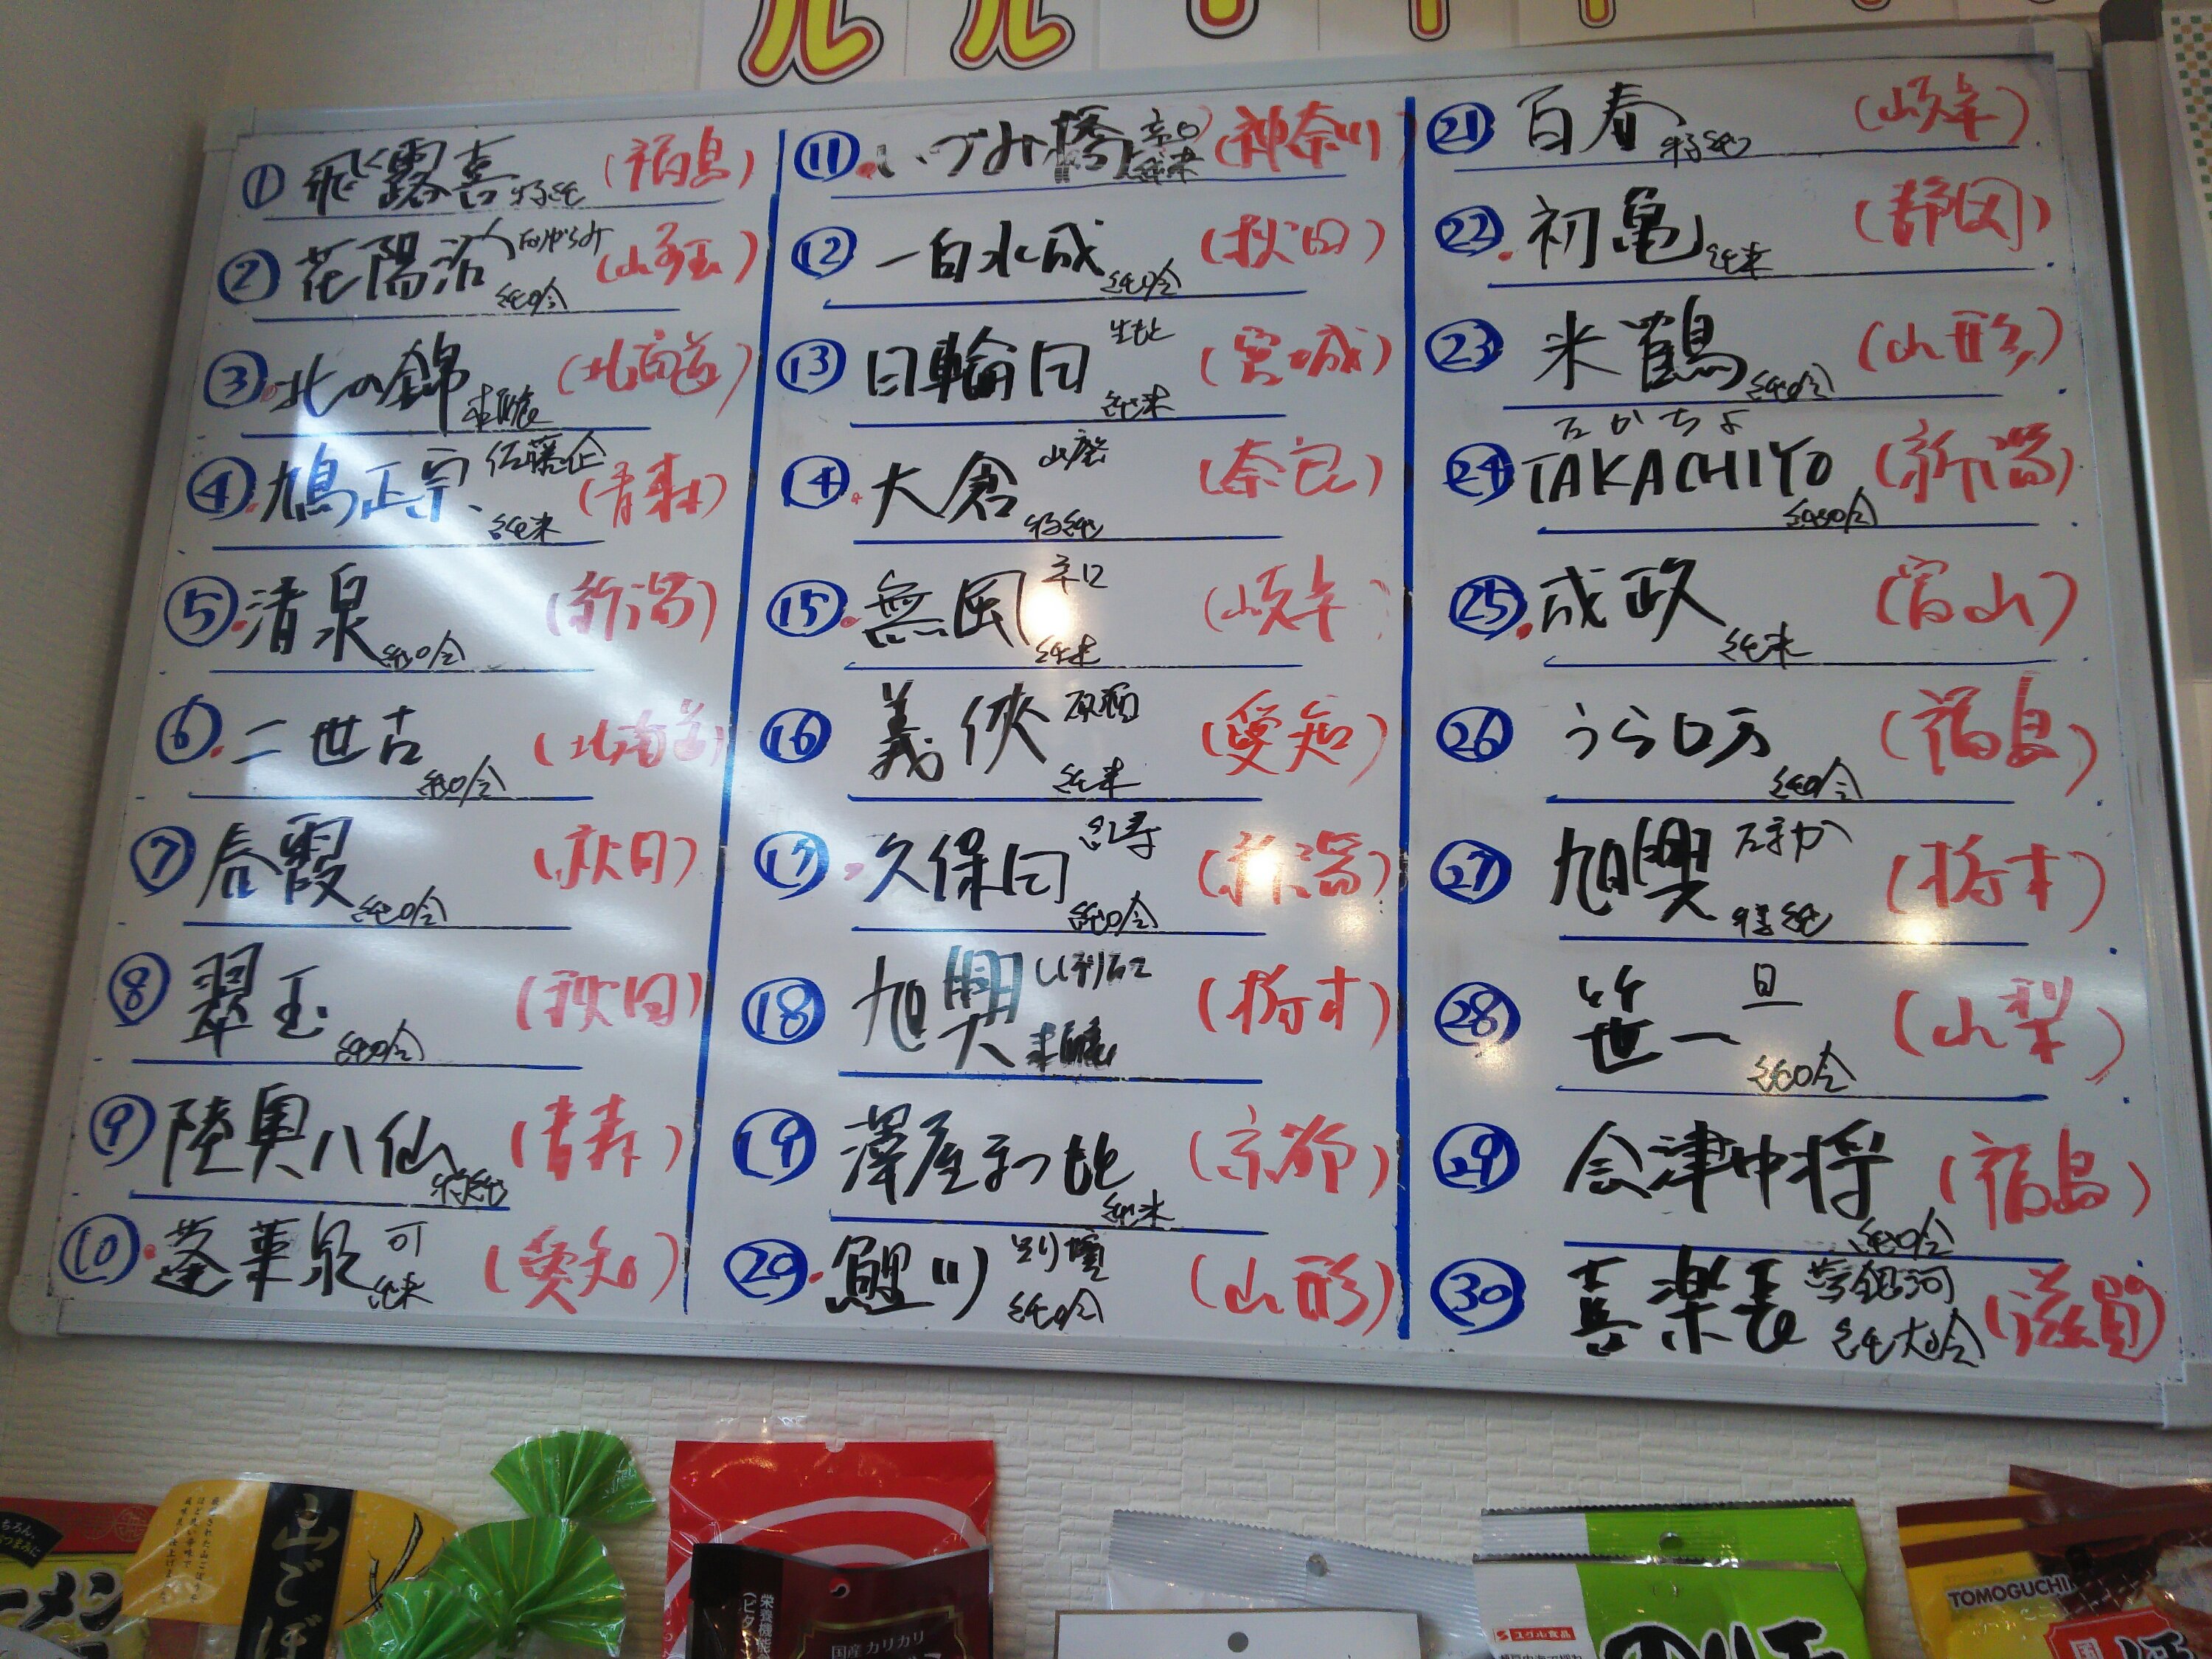 ① 飛露喜 特純 (福島)
② 花陽浴 純吟 (山埼玉)
③ 北の錦 本醸 (北海道)
④ 鳩正宗 佐藤企 純米 (青森)
⑤ 清泉 純吟 (新潟)
⑥ 二世古 純吟 (北海道)
⑦ 春霞 純吟 (秋田)
⑧ 翠玉 純吟 (秋田)
⑨ 陸奥八仙 特純 (青森)
⑩ 蓬莱泉 可 純米 (愛知)
⑪ いづみ橋 辛口 純米 (神奈川)
⑫ 一白水成 純吟 (秋田)
⑬ 日輪田 生もと 純米 (宮城)
⑭ 大倉 山廃 特純 (奈良)
⑮ 無風 辛口 純米 (岐阜)
⑯ 義侠 原酒 純米 (愛知)
⑰ 久保田 純吟 (新潟)
⑱ 旭興 本醸 (栃木)
⑲ 澤屋まつもと 純米 (京都)
⑳ 鯉川 別嬪 純吟 (山形)
㉑ 百春 特純 (岐阜)
㉒ 初亀 純米 (静岡)
㉓ 米鶴 純吟 (山形)
たかちよ
㉔ TAKACHIYO 純吟 (新潟)
㉕ 成政 純米 (富山)
㉖ うらロ万 純吟 (福島)
㉗ 旭興 たまか 特純 (栃木)
㉘ 笹一 旦 純吟 (山梨)
㉙ 会津中将 純吟 (福島)
㉚ 喜楽長 夢銀河 純大吟 (滋賀)
山ごぼ
国産カリカリ
ユタル食品
TOMOGUCHI